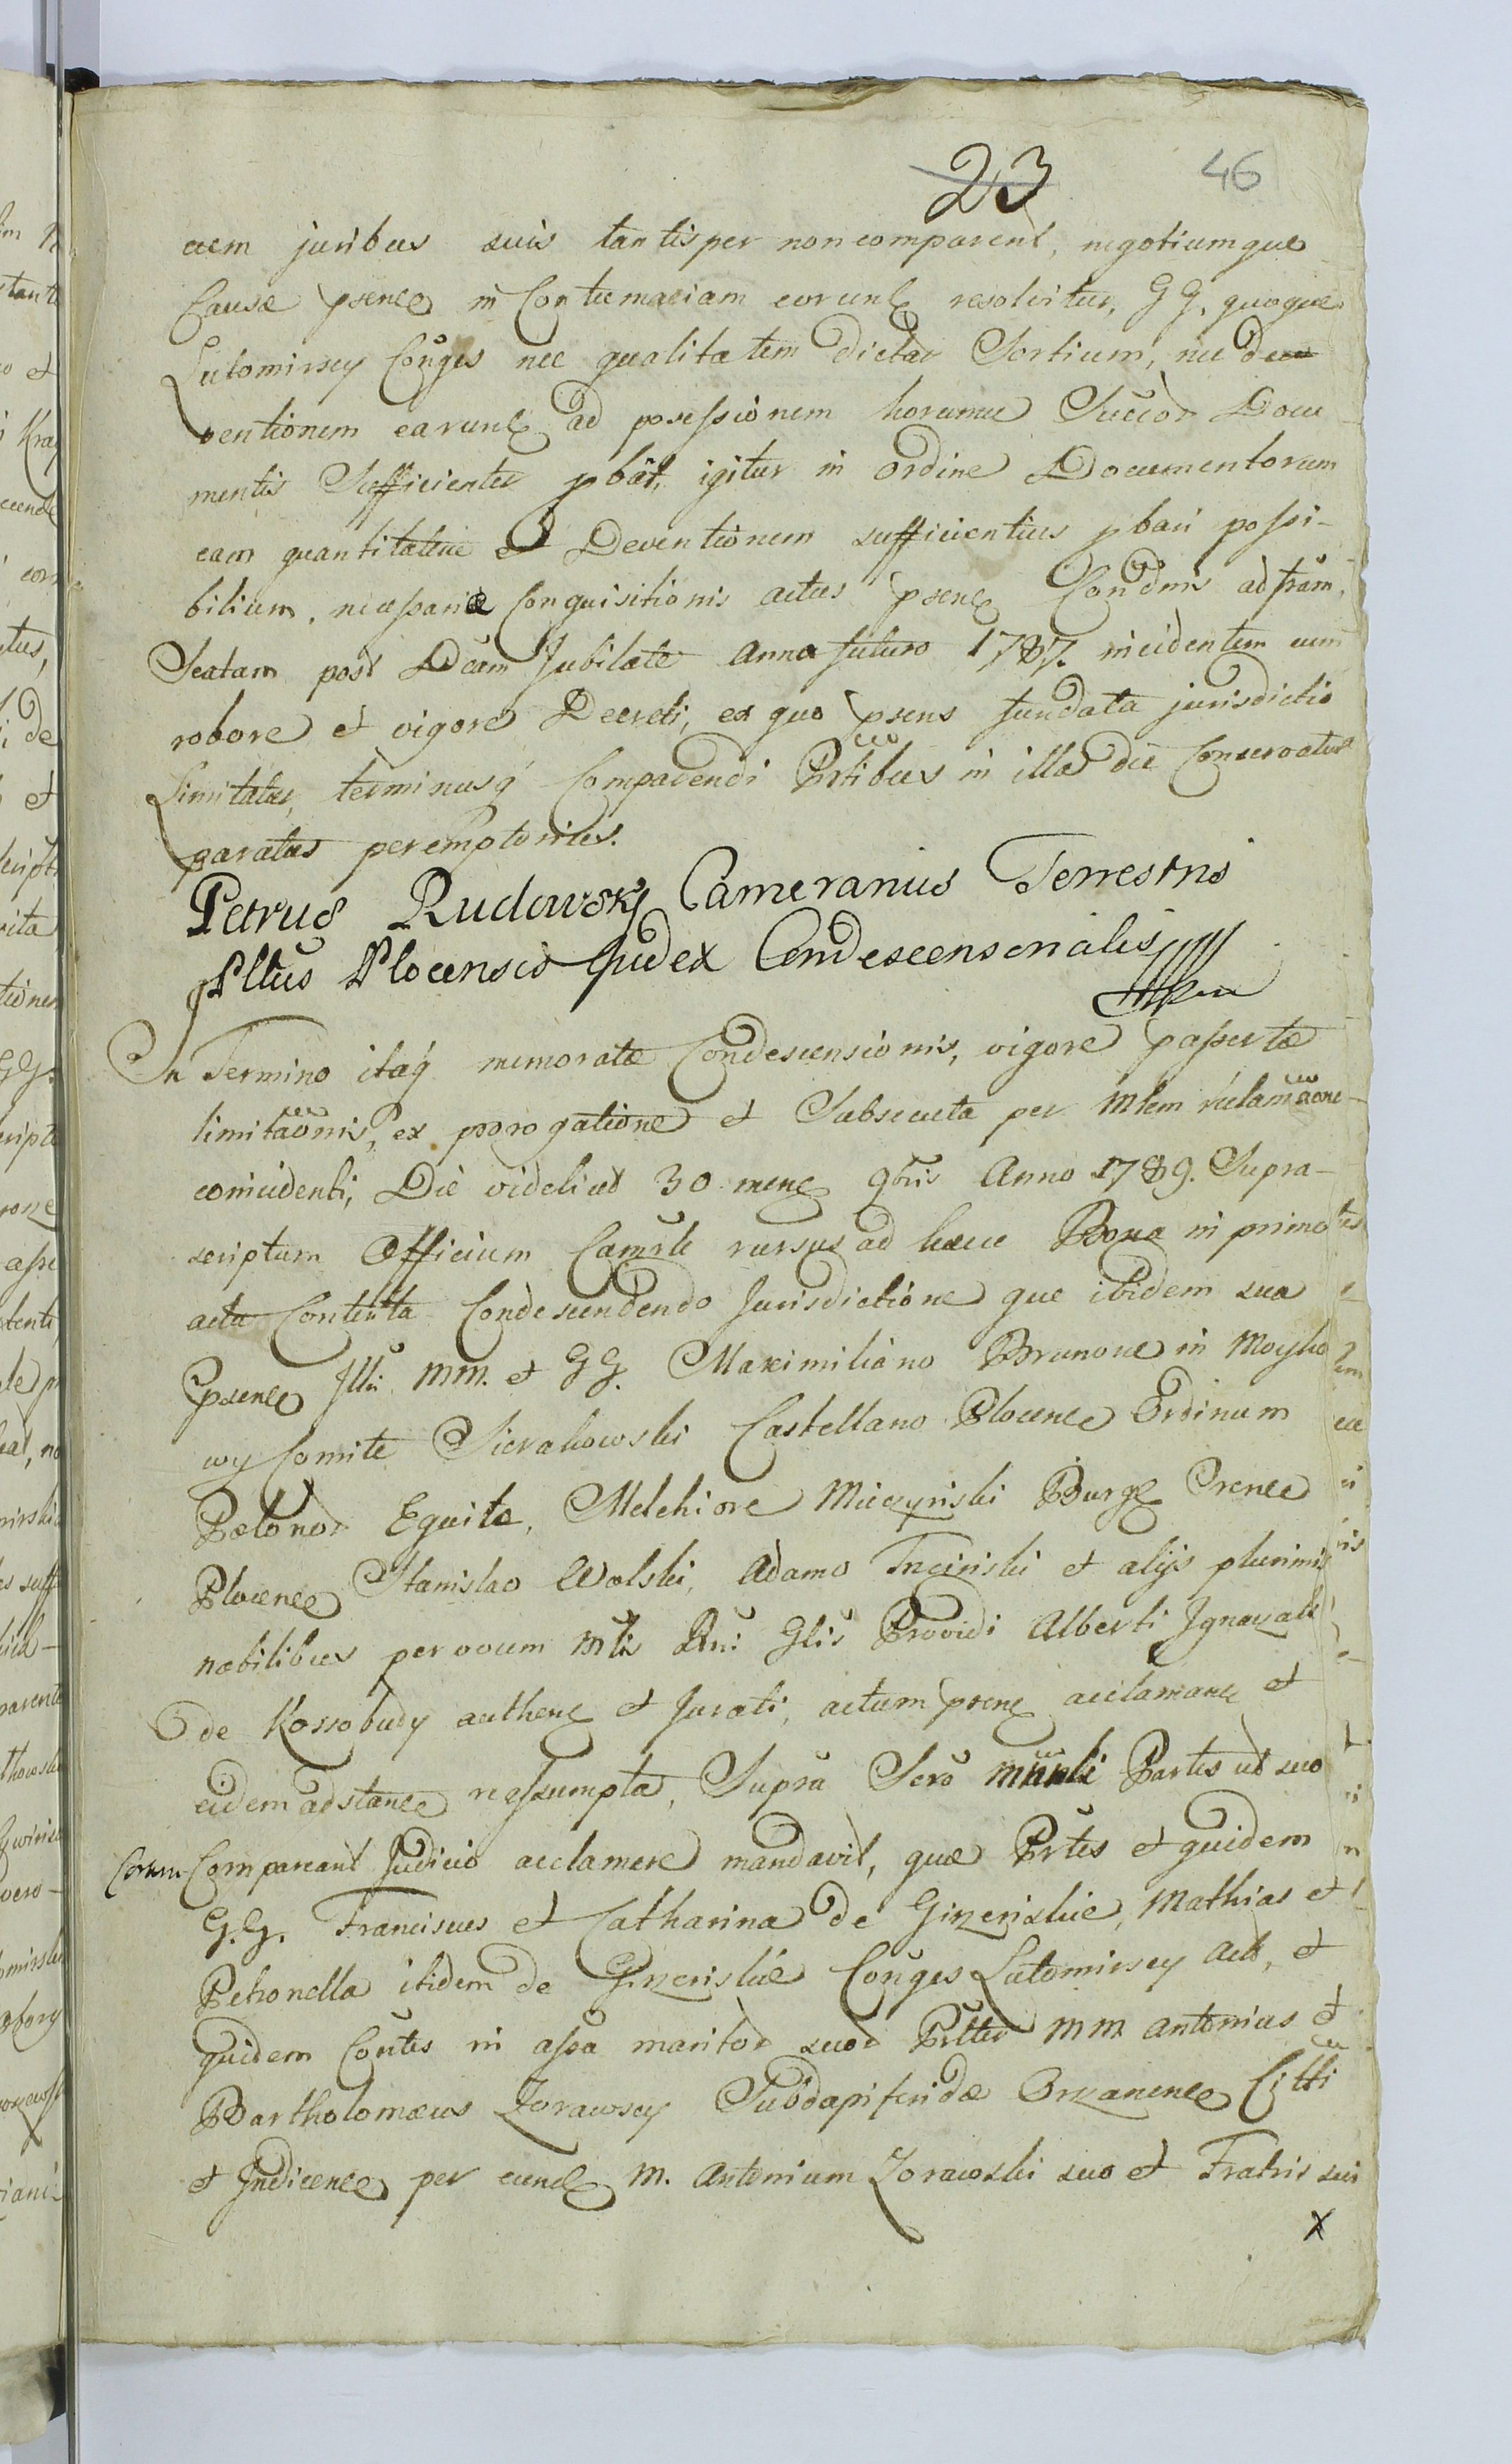 23 46
cum juribus suis tantisper non comparent, negotiumque
Causæ psence in Contumaciam eorund resolvitur, GG. quoque
Lutomirscy Conges nec qualitatem dictar Sortium, nec de
ventionem earund ad possessionem horumce Succor Docu
mentis Sufficienter pbāt, igitur in ordine Documentorum
eam quantitative et Deventionem sufficientius pbari possi-
bilium, necessariæ Conquisitionis actus psens Condmis ad fram
Sextam post Dcam Jubilate Anno futuro 1787. incidentem cum
robore et vigore Decreti, ex quo psens fundata jurisdictio
Limitatur, terminusq Comparendi Prtibus in illa die Conservatur
paratus peremptorius.
Petrus Rudowsky Camerarius Terrestris
Pltus Plocensis Judex Condescensorialis
In Termino itaq memoratæ Condescensionis, vigore passertæ
limitaōnis, ex prorogatione et Subsecuta per Mlem reclamāone
coincidenti, Die videlicet 30 mens 9bris Anno 1789. Supra-
scriptum Officium Camrle rursus ad hæcce Bona in primo
actu Contenta Condescendendo Jurisdictione que ibidem sua
psence Illū MM. et GG. Maximiliano Brunone in Moysko
wy Comite Sierakowski Castellano Plocence Ordinum
Polonor Equite, Melchiore Miczyński Burg Crence
Plocence Stanislao Wolski, Adamo Trciński et alijs plurimis
nobilibus per vocum Mlis Rni Glis Providi Alberti Ignaczak
de Kossobudy authen et Jurati, actum psens acclamans et
eidem adstance reassumpta, Supra Scrō Partes ut suo
Coram Compareant Judicio acclamare mandavit, quæ Prtes et quidem
G.G. Franciscus et Catharina de Ginerislie, Mathias et
Petronella itidem de Gizerislie Conges Lutomirscy Act, et
quidem Contes in assa maritor suor Prlter MM Antonius et
Bartholomæus Zorawscy Subdapiferidæ Citti
et Indicence per eund M. Antonium Zorawski suo et Fratris sui
x